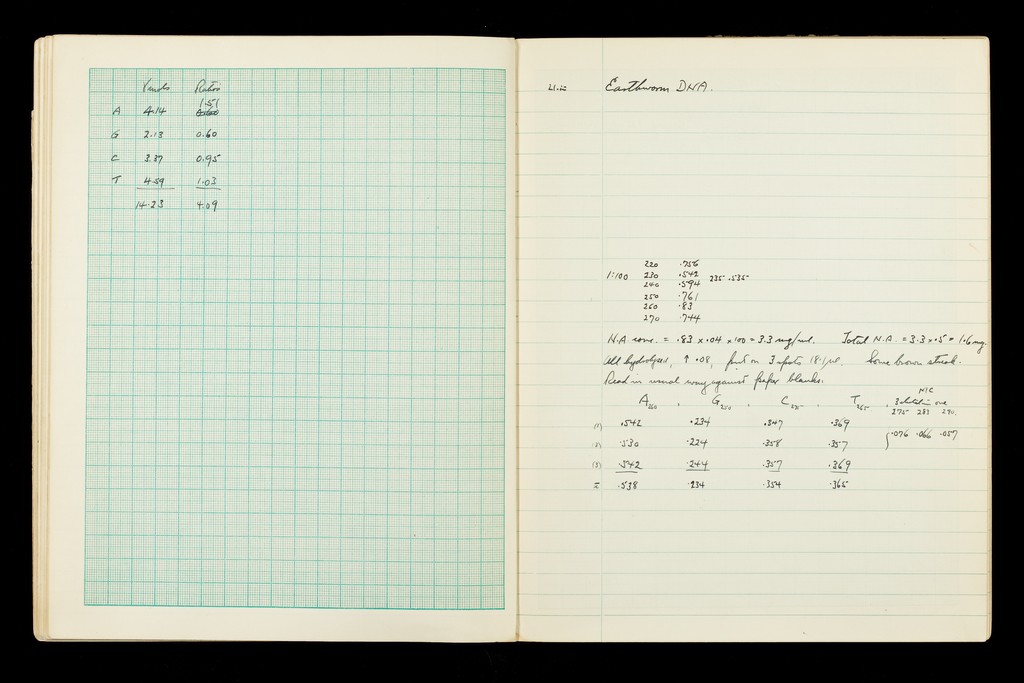 Yields Ratios
1.51
A 4.14
G 2.13 0.60
C 3.37 0.95
T 4.59 1.03
14.23 4.09
Earthworm DNA.
220 .756
1:100 230 .542 235 .535
240 .594
250 .761
260 .83
270 .744
N.A. conc. = .83 x .04 x 100 = 3.3 mg/ml. Total N.A. = 3.3 x .5 = 1.6 mg.
All hydrolysed, ↑ .08, put on 3 spots 18 μl. Some brown streak.
Read in usual way against paper blanks.
M/C
A260, G250, C275, T265, 3 diluted in one
275 283 290.
(1) .542 .234 .347 .369
(2) .530 .224 .358 .357 .076 .066 .057
(3) .542 .244 .357 .369
.538 .234 .354 .365